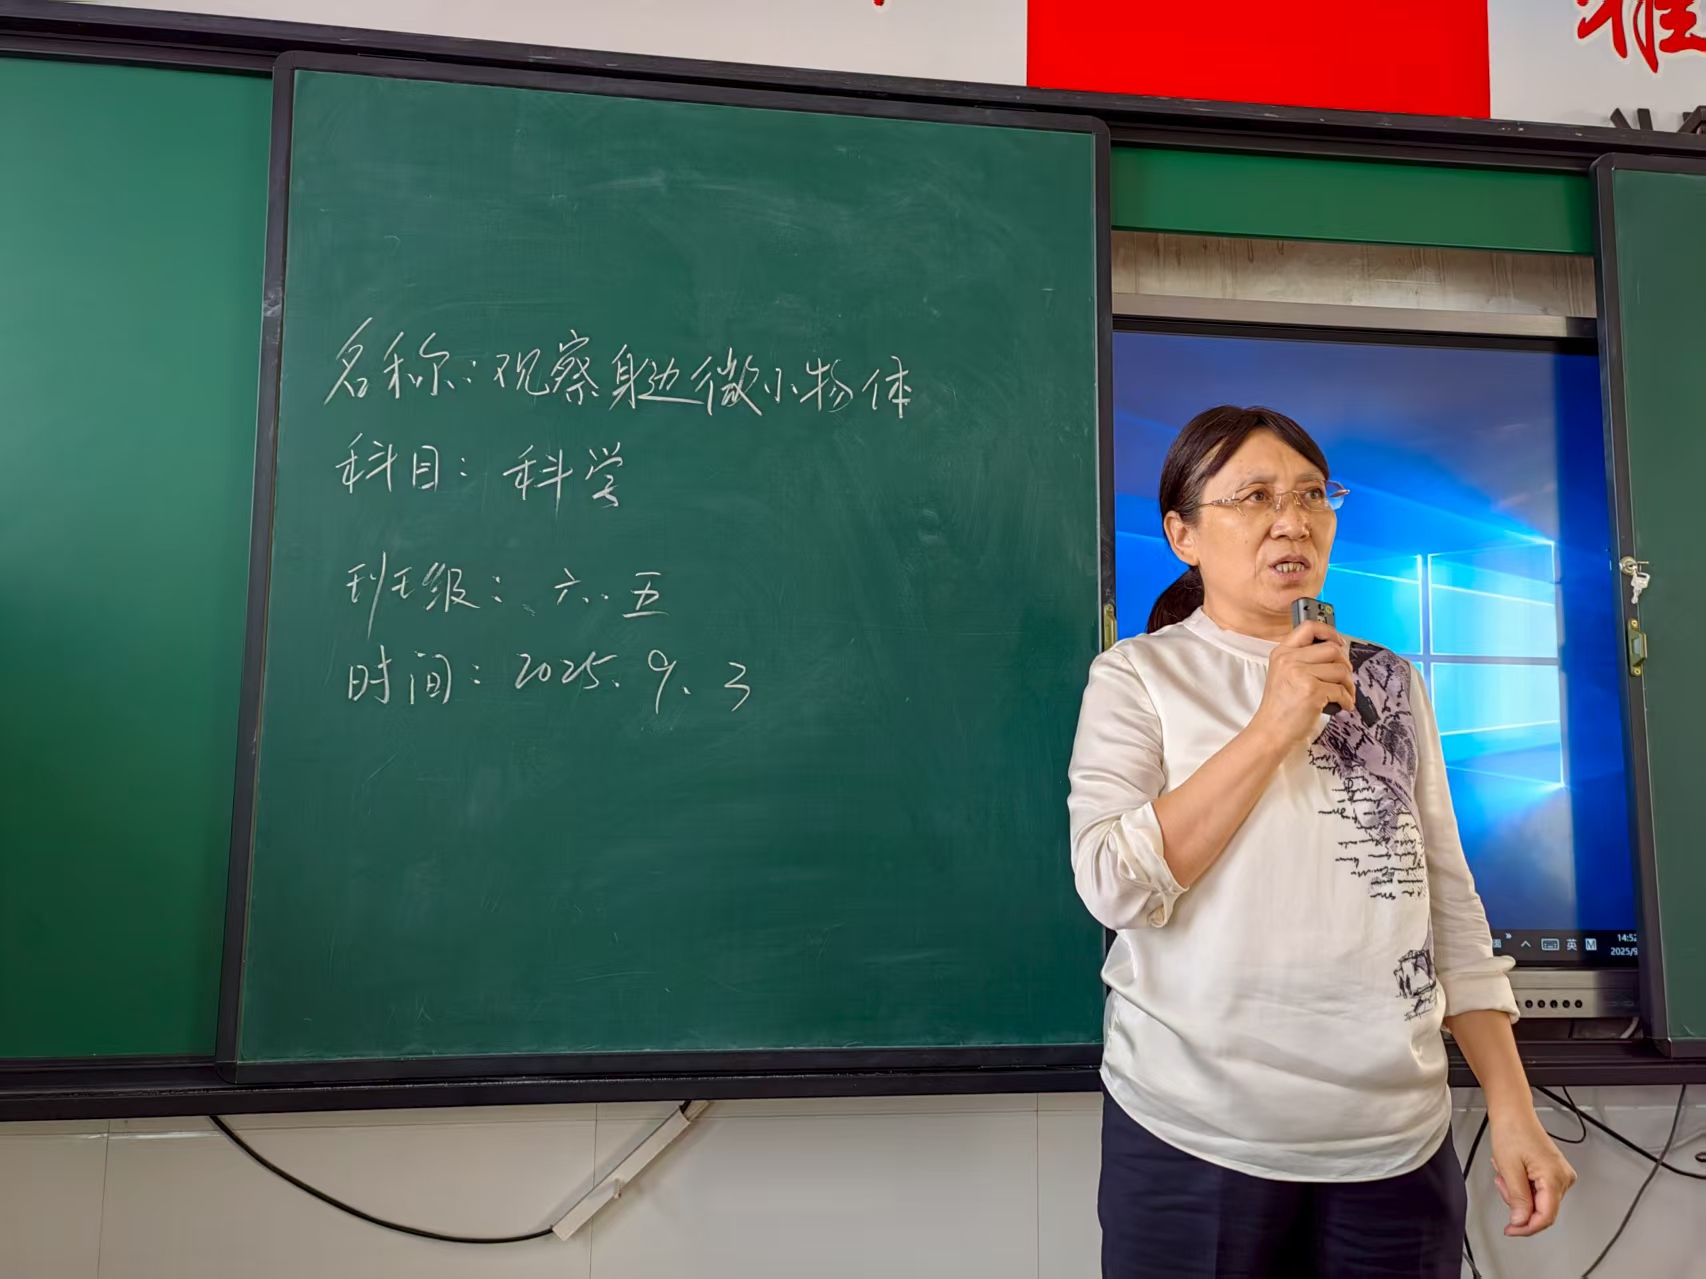 雅
名称:观察身边微小物体
科目:科学
班级:六.五
时间:2025.9.3
英 M 14:52
2025/9